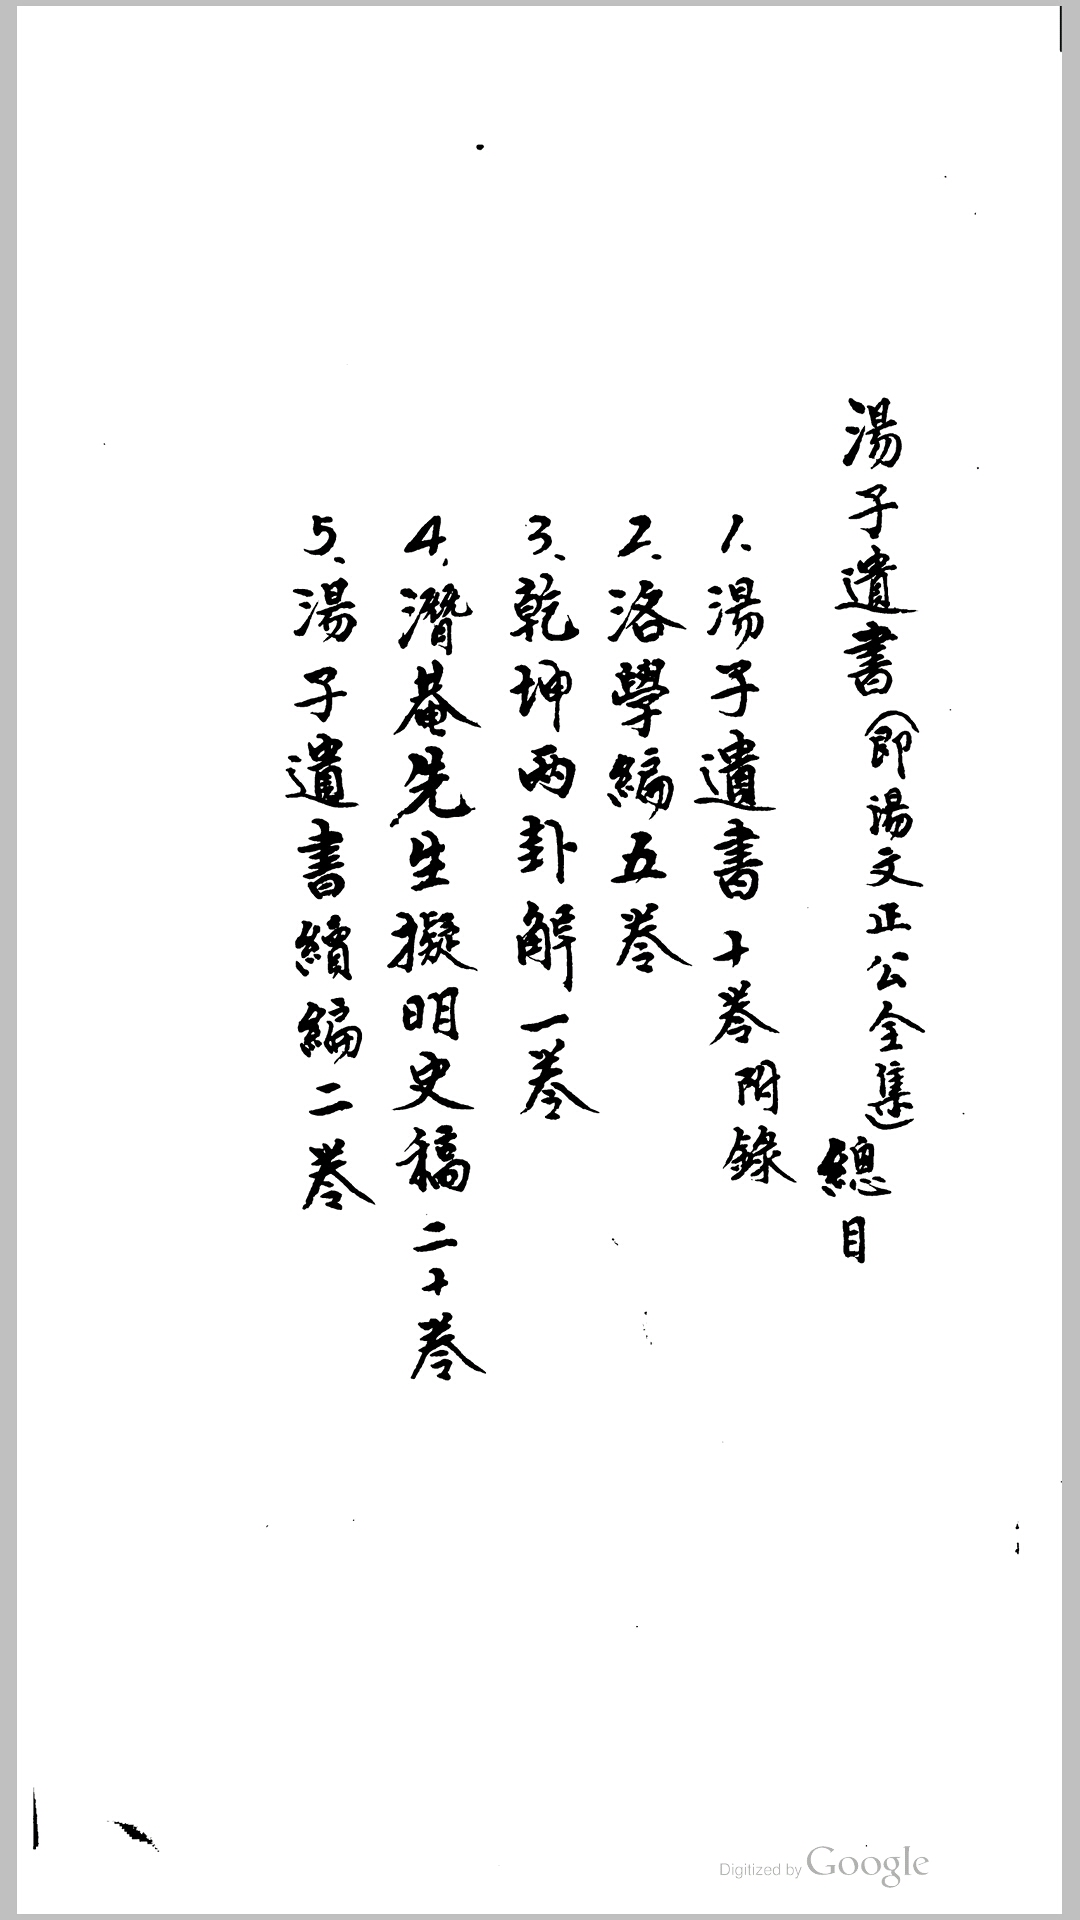 湯子遺書(即湯文正公全集)總目
1、湯子遺書十卷附錄
2、洛學編五卷
3、乾坤两卦解一卷
4、潛菴先生擬明史稿二十卷
5、湯子遺書續編二卷
Digitized by Google